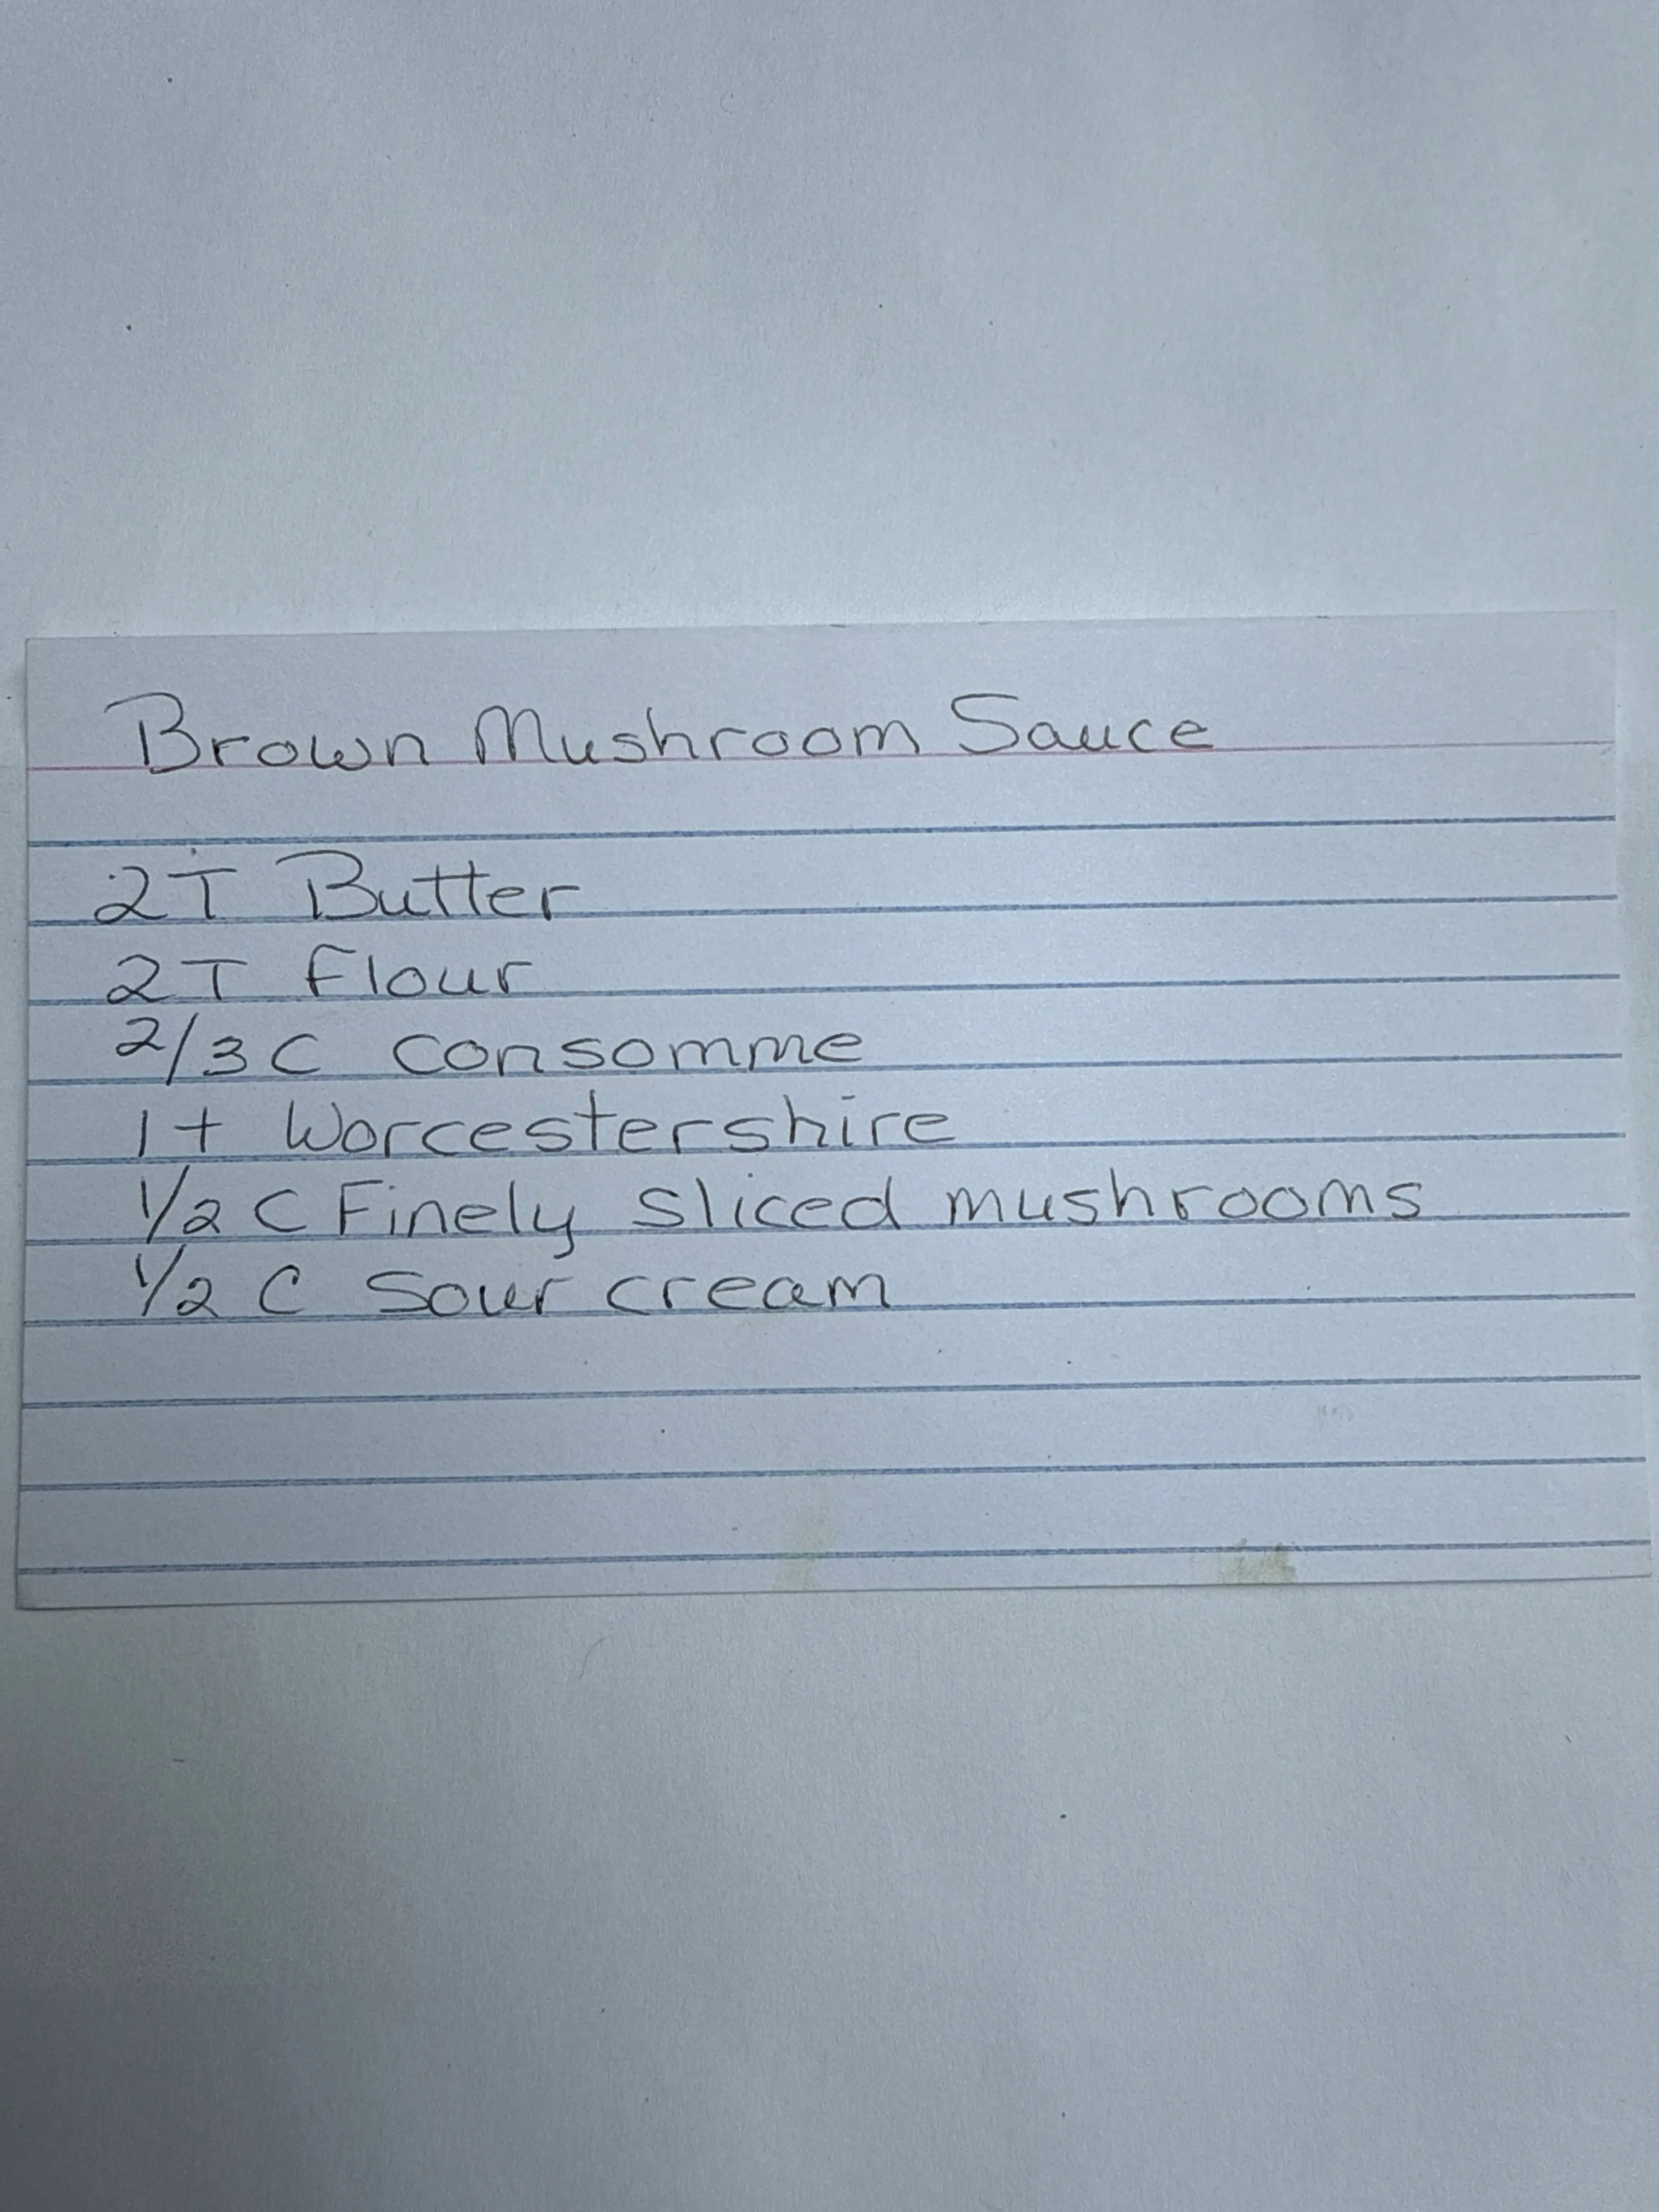 Brown Mushroom Sauce
2T Butter
2T Flour
2/3 C Consomme
1 t Worcestershire
1/2 C Finely sliced mushrooms
1/2 C Sour cream